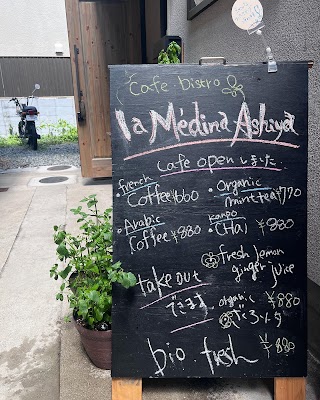 Cafe bistro
la Medina Ashiya
Cafe open しました
・french Coffee ¥660
・Organic mint tea ¥770
・Arabic Coffee ¥880
・(Hai) ¥880
fresh lemon ginger juice
take out できます
organic ¥880
bio fresh ¥880